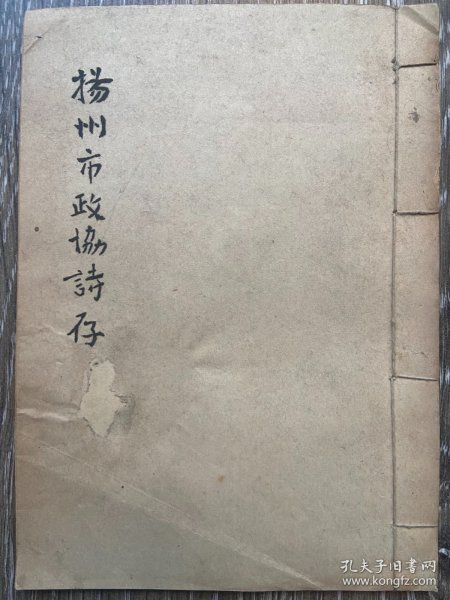 揚州市政協詩存
孔夫子旧书网
www.kongfz.com